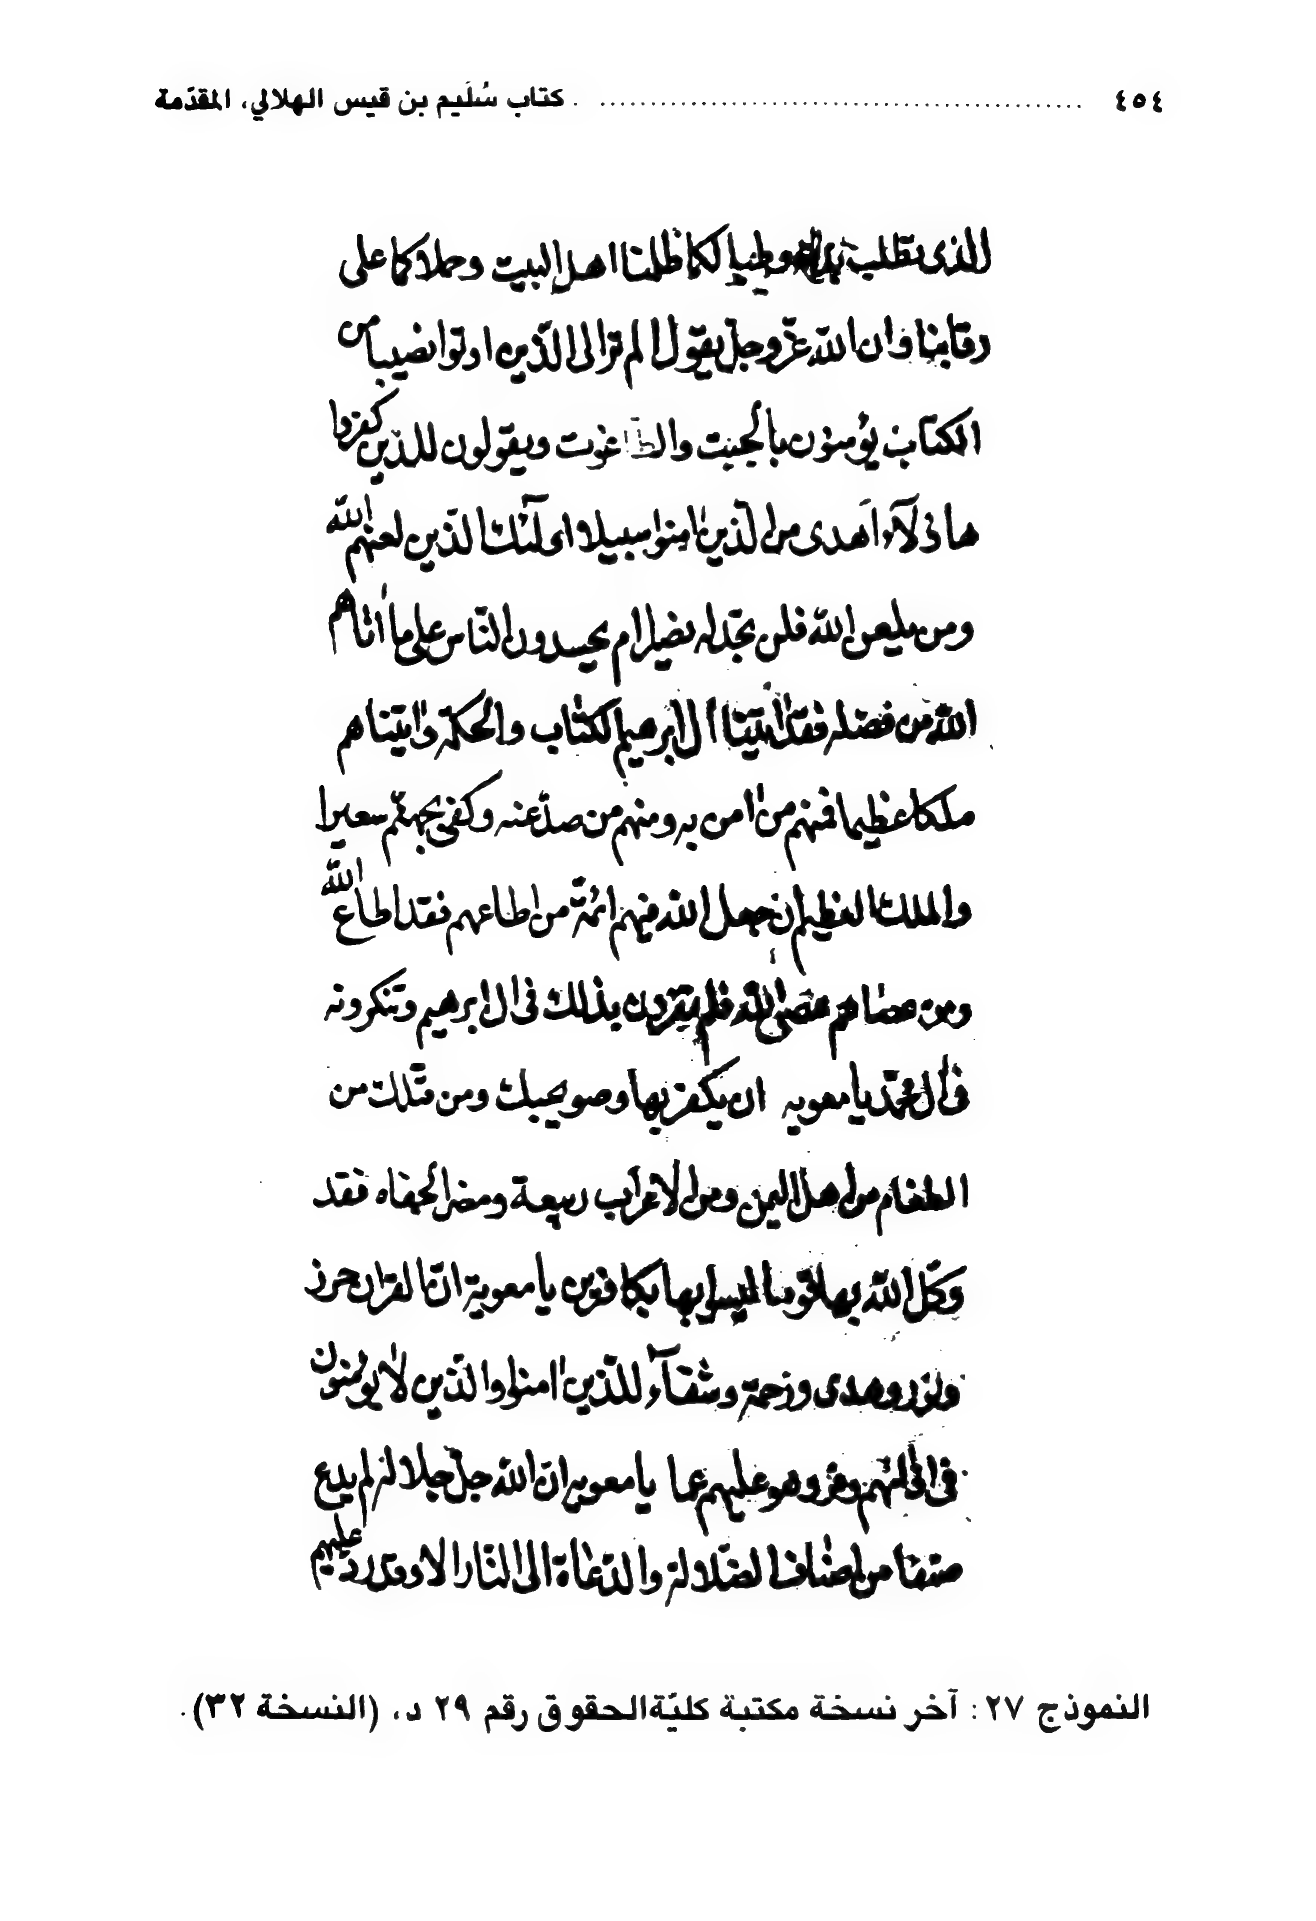 ٤٥٤ كتاب سُلَيم بن قيس الهلالي، المقدّمة
الذى تطلب وطيبا لكما ظلمنا اهل البيت وحملا كما على
رقابنا وان الله عزّ وجلّ يقول الم تر الى الّذين اوتوا نصيبا من
الكتاب يؤمنون بالجبت والطاغوت ويقولون للذين كفروا
هاذى لآء اهدى من الّذين امنوا سبيلا اولئك الّذين لعنهم الله
ومن يلعن الله فلن تجد له نصيرا ام يحسدون النّاس على ما اتاهم
الله من فضله فقد اتينا ال ابرهيم الكتاب والحكمة واتيناهم
ملكا عظيما فمنهم من امن به ومنهم من صدّ عنه وكفى بجهنّم سعيرا
والملك العظيم ان جعل الله فيهم ائمّة من اطاعهم فقد اطاع الله
ومن عصاهم عصى الله فلم يقرون بذلك فى ال ابرهيم وتنكرونه
فى ال محمّد يا معويه ان يكفر بها وصويحبك ومن قبلك من
الطغام من اهل اليمن ومن الاعراب ربيعة ومضر الجفاه فقد
وكّل الله بها قوما ليسوا بها بكافرين يا معوية انّ القران حرز
ونور وهدى ورحمة وشفآء للّذين امنوا والّذين لا يؤمنون
فى اذانهم وقر وهو عليهم عما يا معويه انّ الله جلّ جلاله لم يدع
صنفا من اصناف الضّلالة والدّعاة الى النّار الا وقد ردّ عليهم
النموذج ٢٧: آخر نسخة مكتبة كليّة الحقوق رقم ٢٩ د، (النسخة ٣٢).